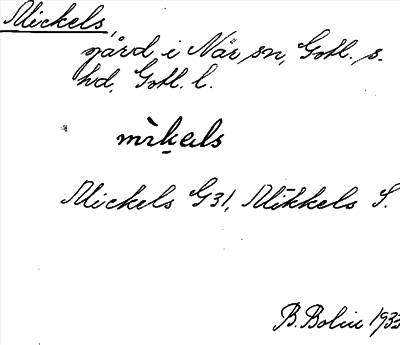 Mickels,
gård i När sn, Gotl. s.
hd, Gotl. l.
mìk̯əls
Mickels G31, Mikkels S.
B. Bolin 1933